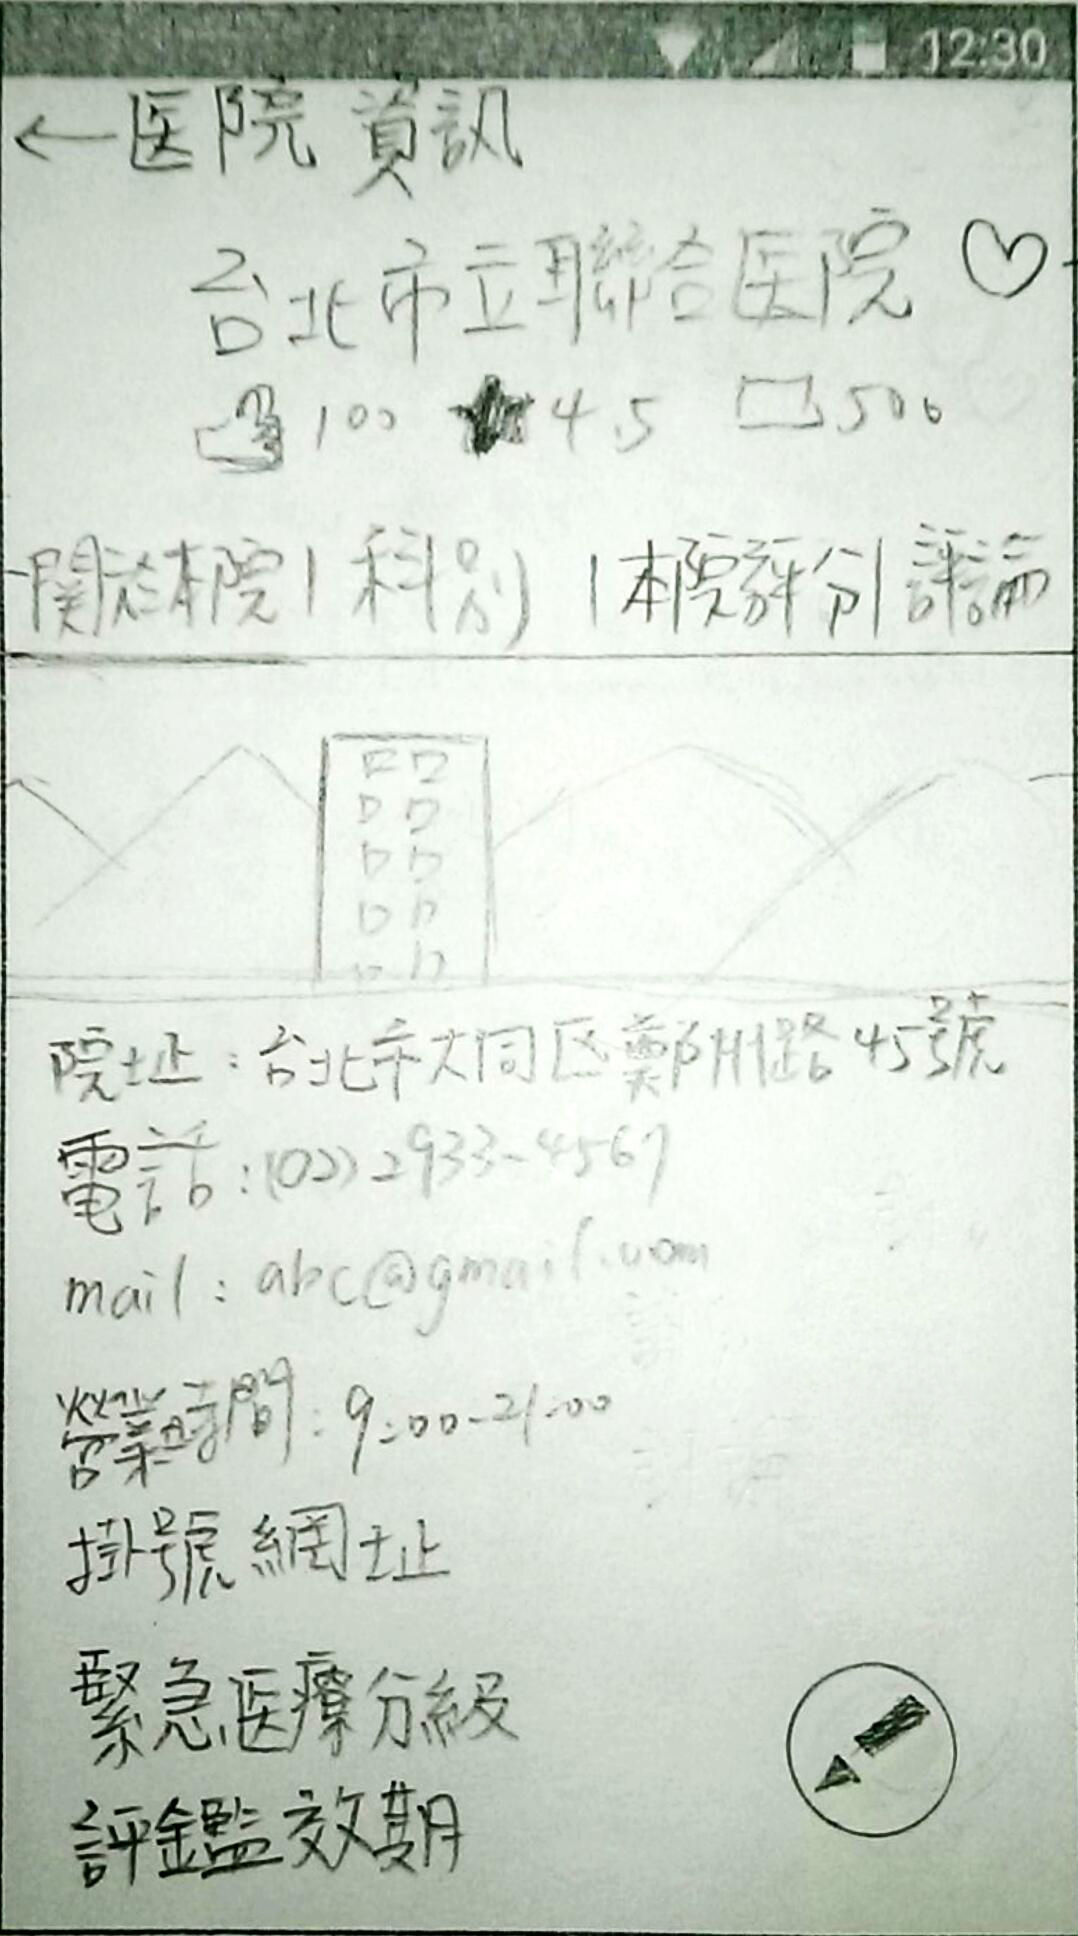 12:30
←医院資訊
台北市立聯合医院
100 4.5 500
関於本院 | 科別 | 本院評分 | 評論
院址:台北市大同区鄭州路45號
電話:(02)2933-4567
mail: abc@gmail.com
營業時間:9:00-21:00
掛號網址
緊急医療分級
評鑑效期